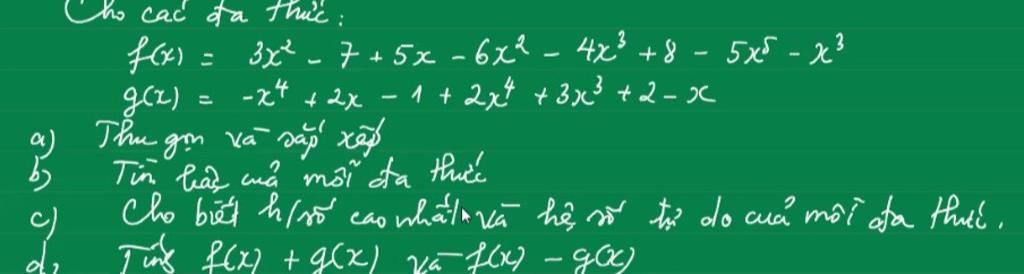 Cho các đa thức:
f(x) = 3x² - 7 + 5x - 6x² - 4x³ + 8 - 5x⁵ - x³
g(x) = -x⁴ + 2x - 1 + 2x⁴ + 3x³ + 2 - x
a) Thu gọn và sắp xếp
b) Tìm bậc của mỗi đa thức
c) Cho biết h/số cao nhất và hệ số tự do của mỗi đa thức.
d, Tính f(x) + g(x) và f(x) - g(x)